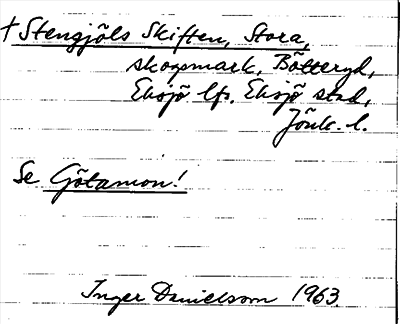 † Stengjöls Skiften, Stora,
skogsmark, Bötteryd,
Eksjö lfs. Eksjö stad,
Jönk. l.
Se Götamon!
Inger Danielsson 1963.